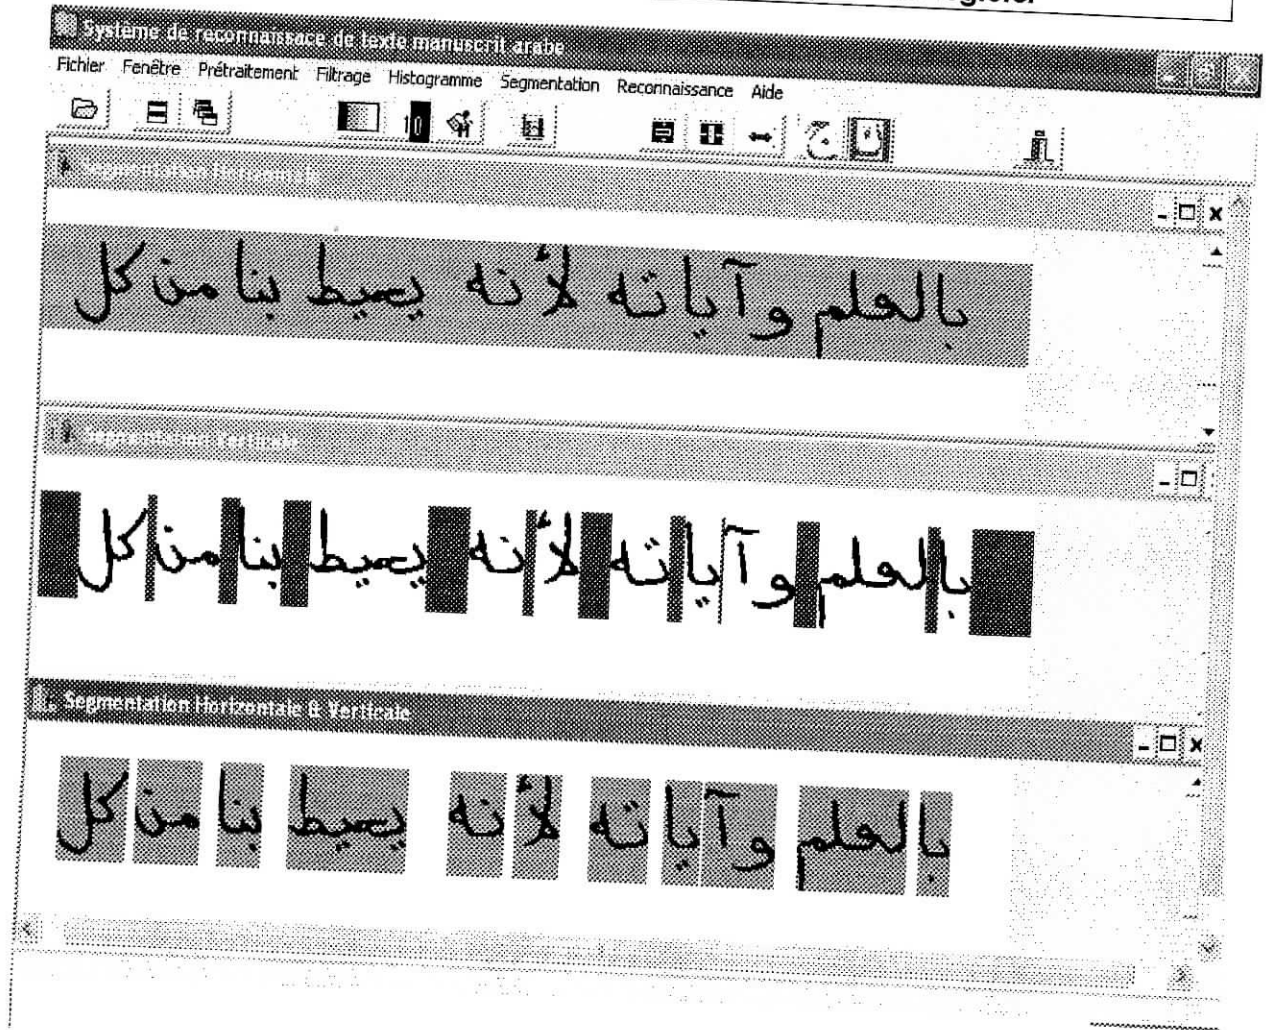 Système de reconnaissace de texte manuscrit arabe
Fichier Fenêtre Prétraitement Filtrage Histogramme Segmentation Reconnaissance Aide
Segmentation Horizontale
بالعلم وآياته لأنه يحيط بنا من كل
Segmentation Verticale
بالعلم وآياته لأنه يحيط بنا من كل
Segmentation Horizontale & Verticale
بالعلم وآياته لأنه يحيط بنا من كل